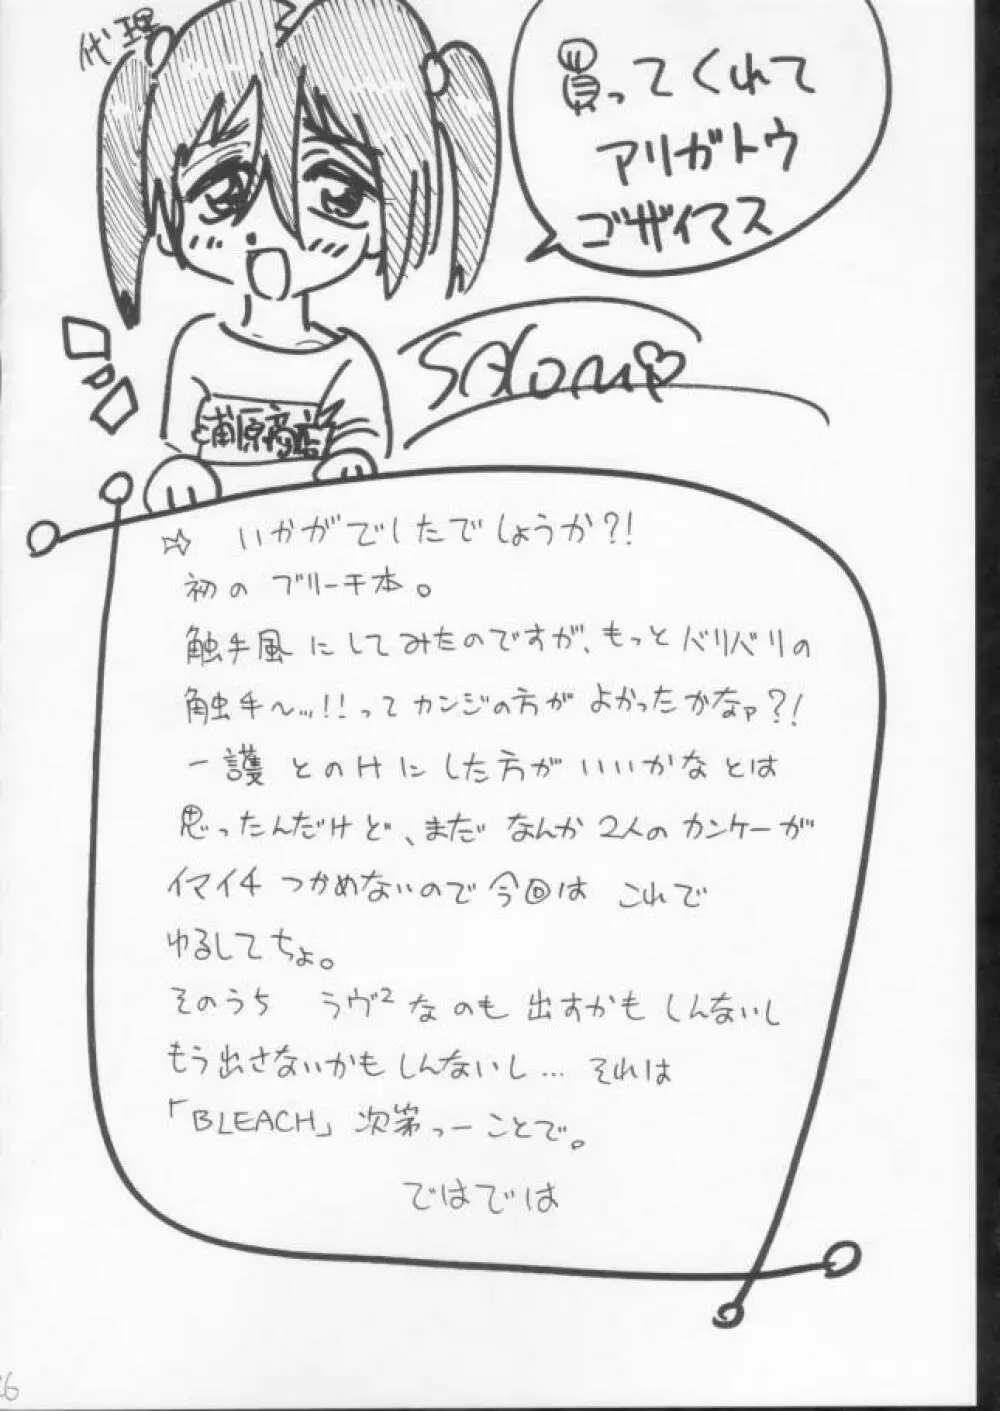 代理
買ってくれて
アリガトウ
ゴザイマス
浦原商店
☆ いかがでしたでしょうか?!
初の ブリーチ本。
触手風にしてみたのですが、もっとバリバリの
触手〜…!!ってカンジの方が よかったかなァ?!
一護とのHにした方がいいかなとは
思ったんだけど、まだ なんか 2人のカンケーが
イマイチ つかめないので今回は これで
ゆるしてちょ。
そのうち ラヴ²なのも 出すかも しんないし
もう出さないかも しんないし… それは
「BLEACH」次第っーことで。
ではでは
26